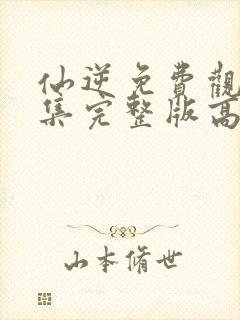 仙逆免費觀
集完整版高
山本脩世